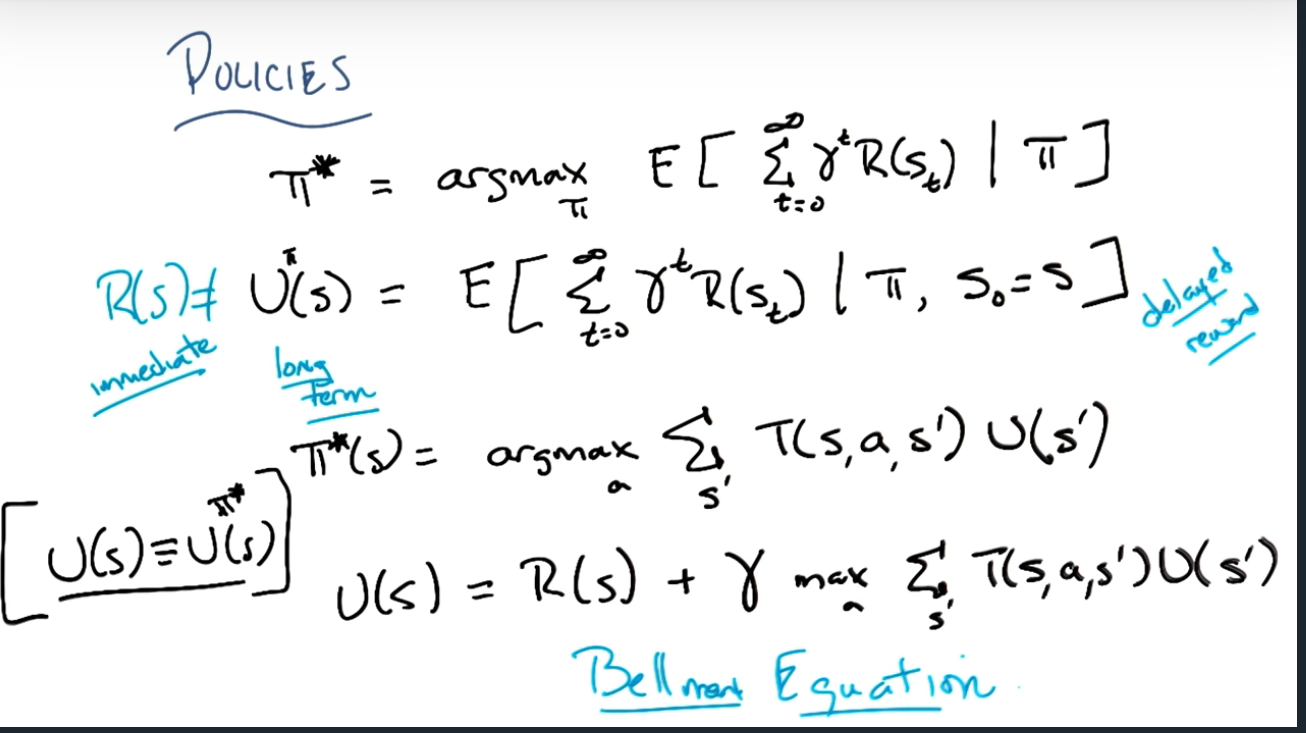 POLICIES
π* = argmax_π E[ Σ_{t=0}^{∞} γ^t R(s_t) | π ]
R(s) ≠ U^π(s) = E[ Σ_{t=0}^{∞} γ^t R(s_t) | π, s_0 = s ]
immediate long term delayed reward
π*(s) = argmax_a Σ_{s'} T(s,a,s') U(s')
[ U(s) ≡ U^{π*}(s) ]
U(s) = R(s) + γ max_a Σ_{s'} T(s,a,s') U(s')
Bellman Equation